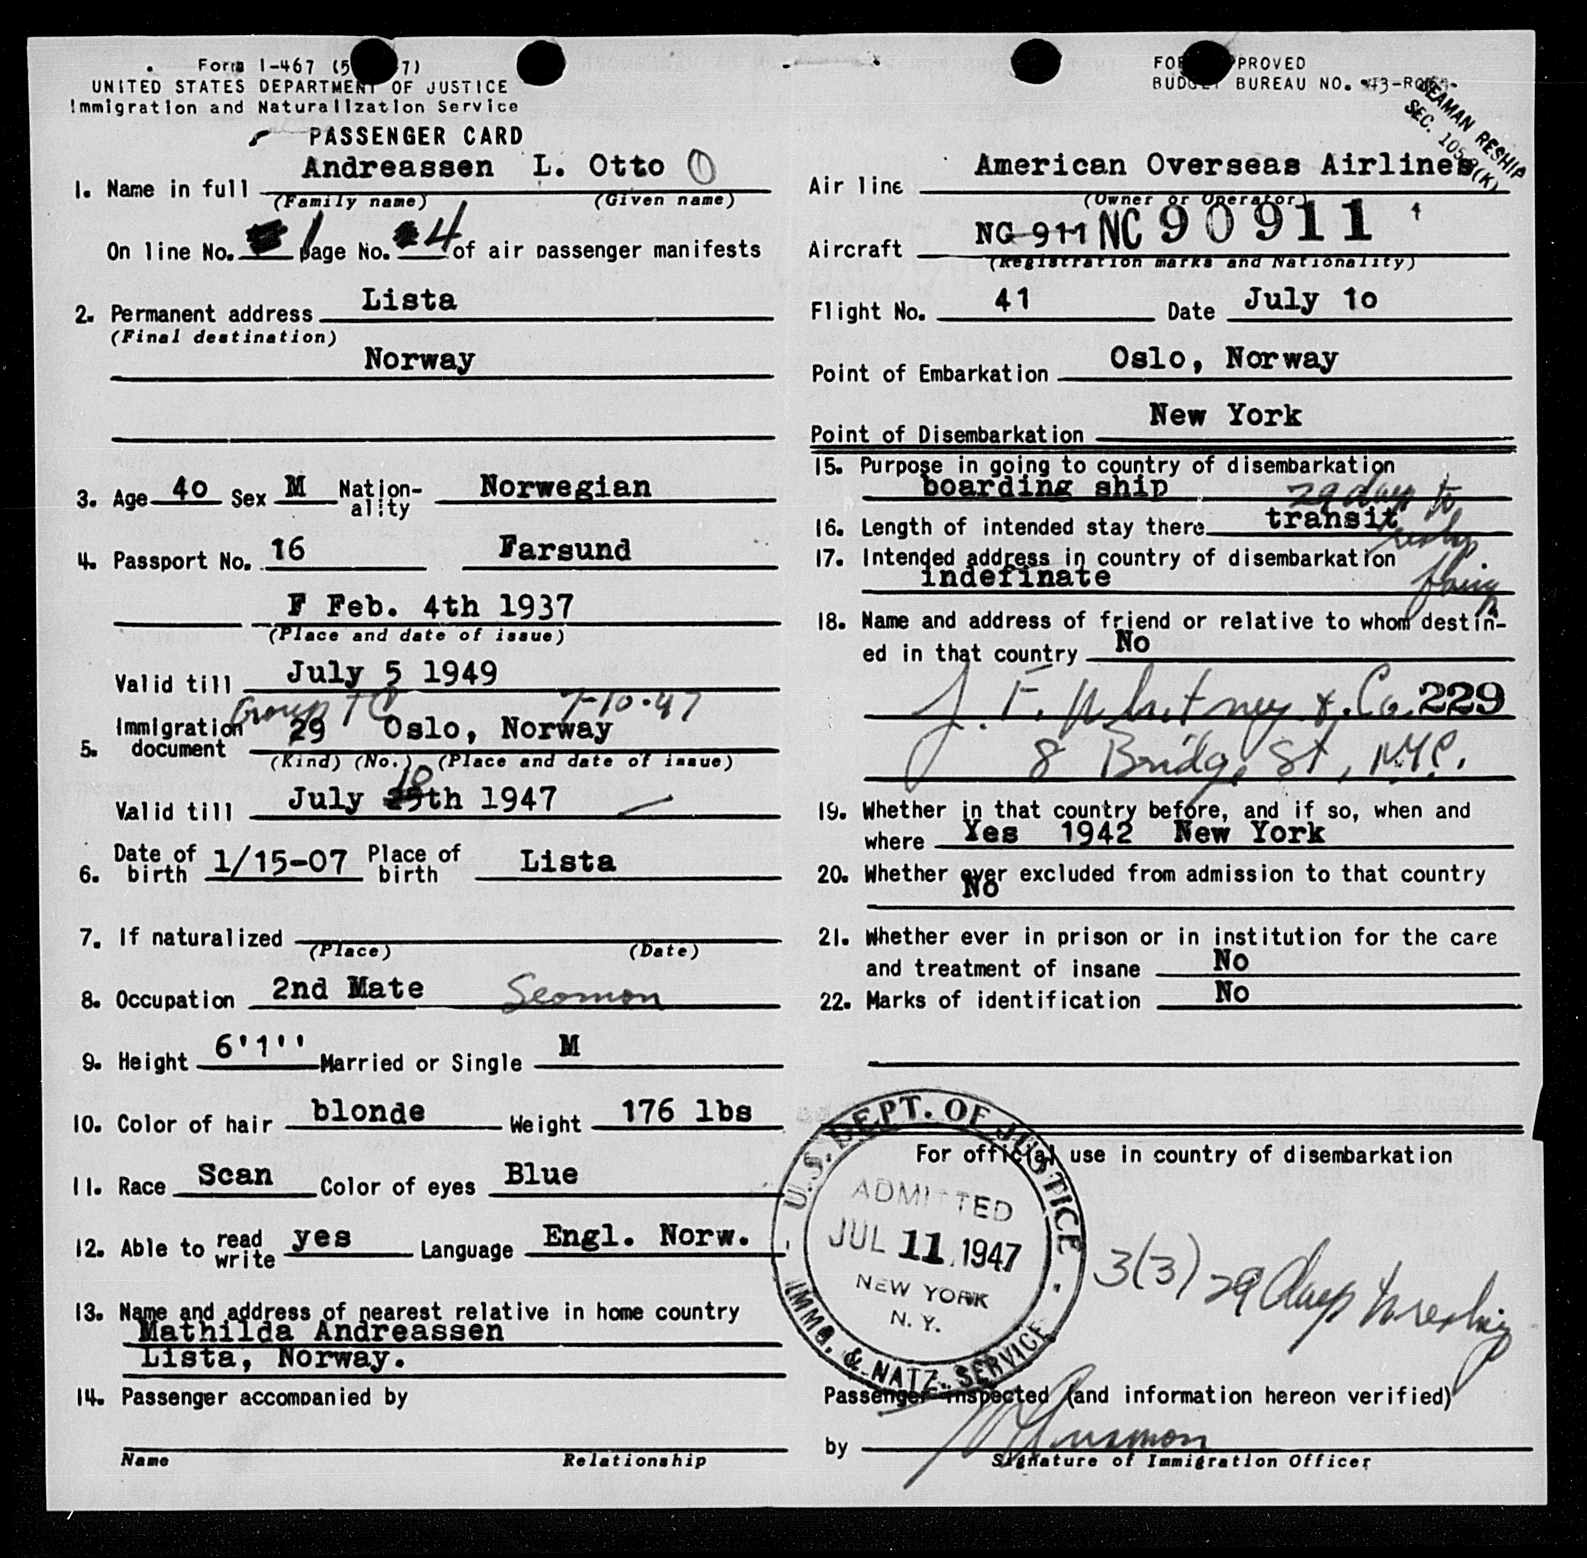 Form I-467 (5 7)
UNITED STATES DEPARTMENT OF JUSTICE
Immigration and Naturalization Service
PASSENGER CARD
1. Name in full Andreassen L. Otto
(Family name) (Given name)
On line No. 1 page No. 4 of air passenger manifests
2. Permanent address Lista
(Final destination)
Norway
3. Age 40 Sex M Nation-ality Norwegian
4. Passport No. 16 Farsund
F Feb. 4th 1937
(Place and date of issue)
Valid till July 5 1949
Group TC 7-10-47
5. Immigration document 29 Oslo, Norway
(Kind) (No.) (Place and date of issue)
10
Valid till July 29th 1947
6. Date of birth 1/15-07 Place of birth Lista
7. If naturalized
(Place) (Date)
8. Occupation 2nd Mate Seaman
9. Height 6'1'' Married or Single M
10. Color of hair blonde Weight 176 lbs
11. Race Scan Color of eyes Blue
12. Able to read write yes Language Engl. Norw.
13. Name and address of nearest relative in home country
Mathilda Andreassen
Lista, Norway.
14. Passenger accompanied by
Name Relationship
FORM APPROVED
BUDGET BUREAU NO.
SEAMAN RESHIP
SEC. 105.3(K)
Air line American Overseas Airlines
(Owner or Operator)
Aircraft NC 911 NC 90911
(Registration marks and Nationality)
Flight No. 41 Date July 10
Point of Embarkation Oslo, Norway
Point of Disembarkation New York
15. Purpose in going to country of disembarkation
boarding ship 29 days to
16. Length of intended stay there transit reship
17. Intended address in country of disembarkation
indefinate
18. Name and address of friend or relative to whom destin-
ed in that country No
J. F. Whitney & Co. 229
8 Bridge St, NYC.
19. Whether in that country before, and if so, when and
where Yes 1942 New York
20. Whether ever excluded from admission to that country
No
21. Whether ever in prison or in institution for the care
and treatment of insane No
22. Marks of identification No
For official use in country of disembarkation
U.S. DEPT. OF JUSTICE
ADMITTED
JUL 11 1947
NEW YORK
N. Y.
IMMG. & NATZ. SERVICE
3(3) 29 days to reship
Passenger inspected (and information hereon verified)
by
Signature of Immigration Officer